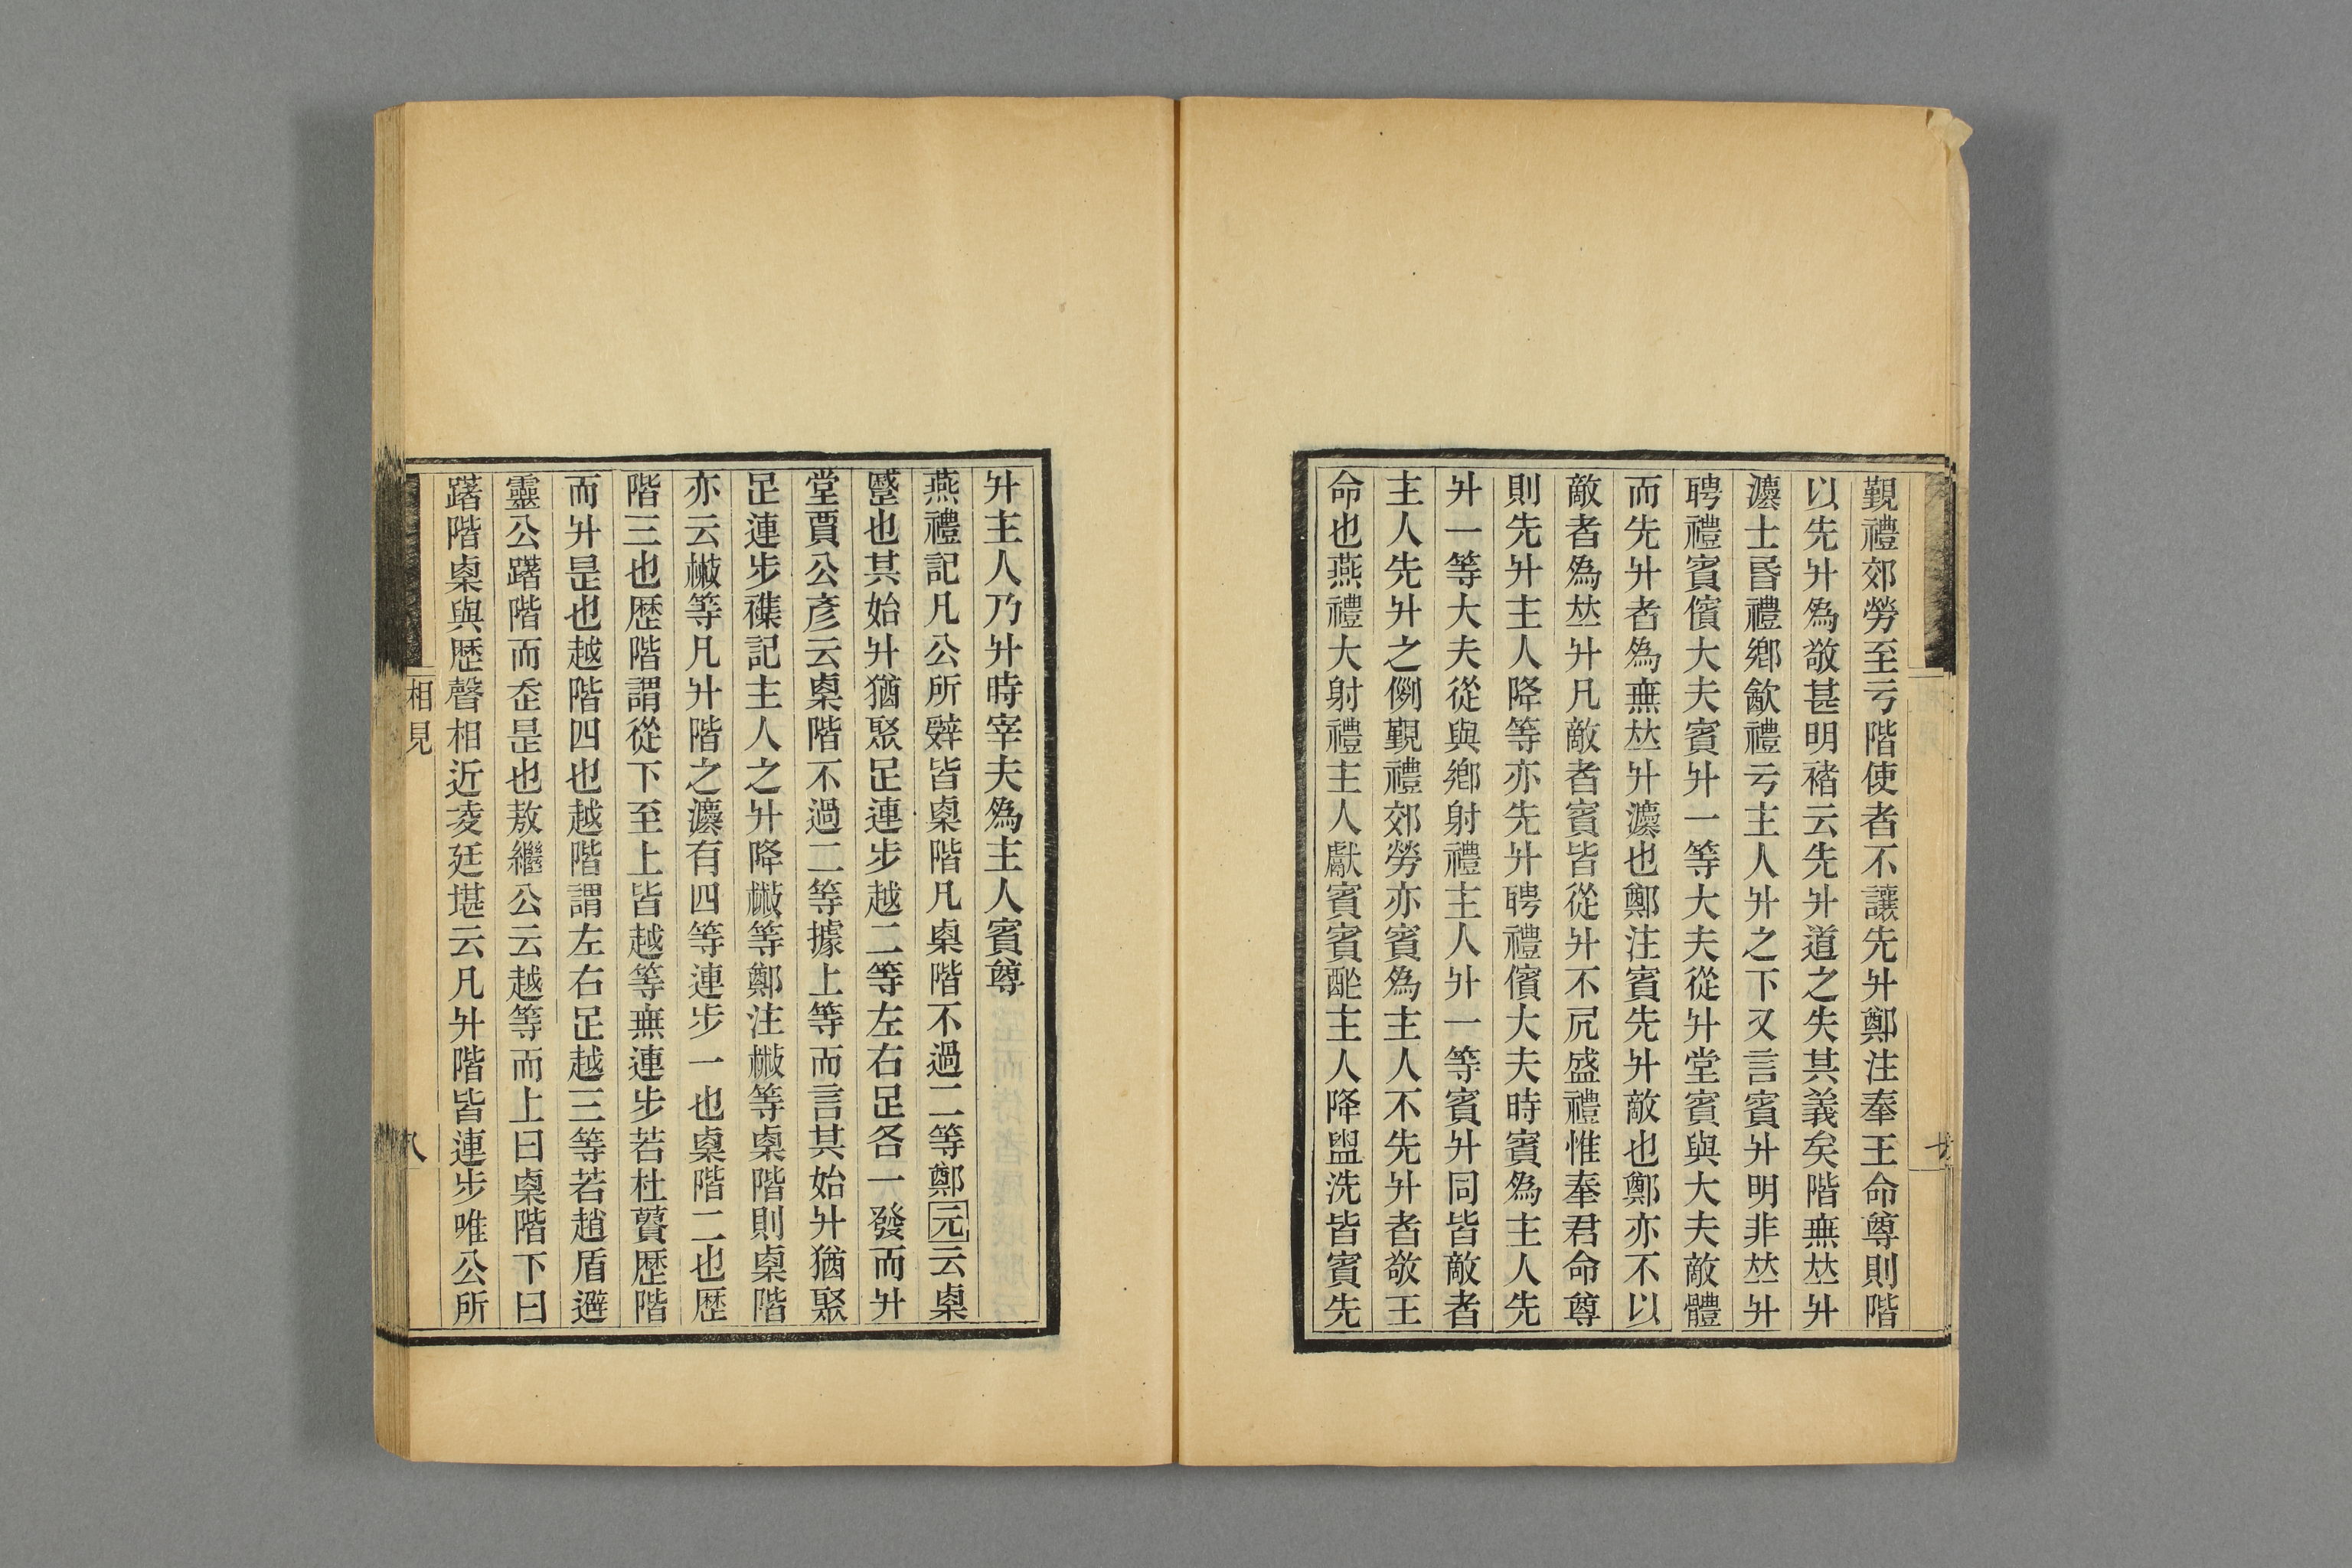 覲禮郊勞至亏階使者不讓先升鄭注奉王命尊則階
以先升爲敬甚明褚云先升道之失其義矣階無竝升
灋士昏禮鄉飮禮亏主人升之下又言賓升明非竝升
聘禮賓儐大夫賓升一等大夫從升堂賓與大夫敵體
而先升者爲無竝升灋也鄭注賓先升敵也鄭亦不以
敵者爲竝升凡敵者賓皆從升不凥盛禮惟奉君命尊
則先升主人降等亦先升聘禮儐大夫時賓爲主人先
升一等大夫從與鄉射禮主人升一等賓升同皆敵者
主人先升之例覲禮郊勞亦賓爲主人不先升者敬王
命也燕禮大射禮主人獻賓賓酢主人降盥洗皆賓先
升主人乃升時宰夫爲主人賓尊
燕禮記凡公所辤皆桌階凡桌階不過二等鄭元云桌
蹙也其始升猶聚足連步越二等左右足各一發而升
堂賈公彥云桌階不過二等據上等而言其始升猶聚
足連步襍記主人之升降散等鄭注散等桌階則桌階
亦云散等凡升階之灋有四等連步一也桌階二也歷
階三也歷階謂從下至上皆越等無連步若杜蕢歷階
而升是也越階四也越階謂左右足越三等若趙盾避
靈公躇階而走是也敖繼公云越等而上曰桌階下曰
躇階桌與歷聲相近凌廷堪云凡升階皆連步唯公所
相見
八